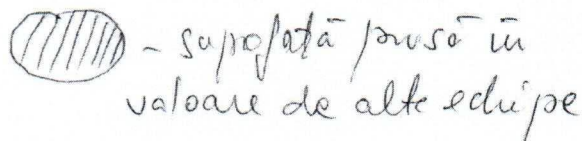 - suprafață pusă în
valoare de alte echipe